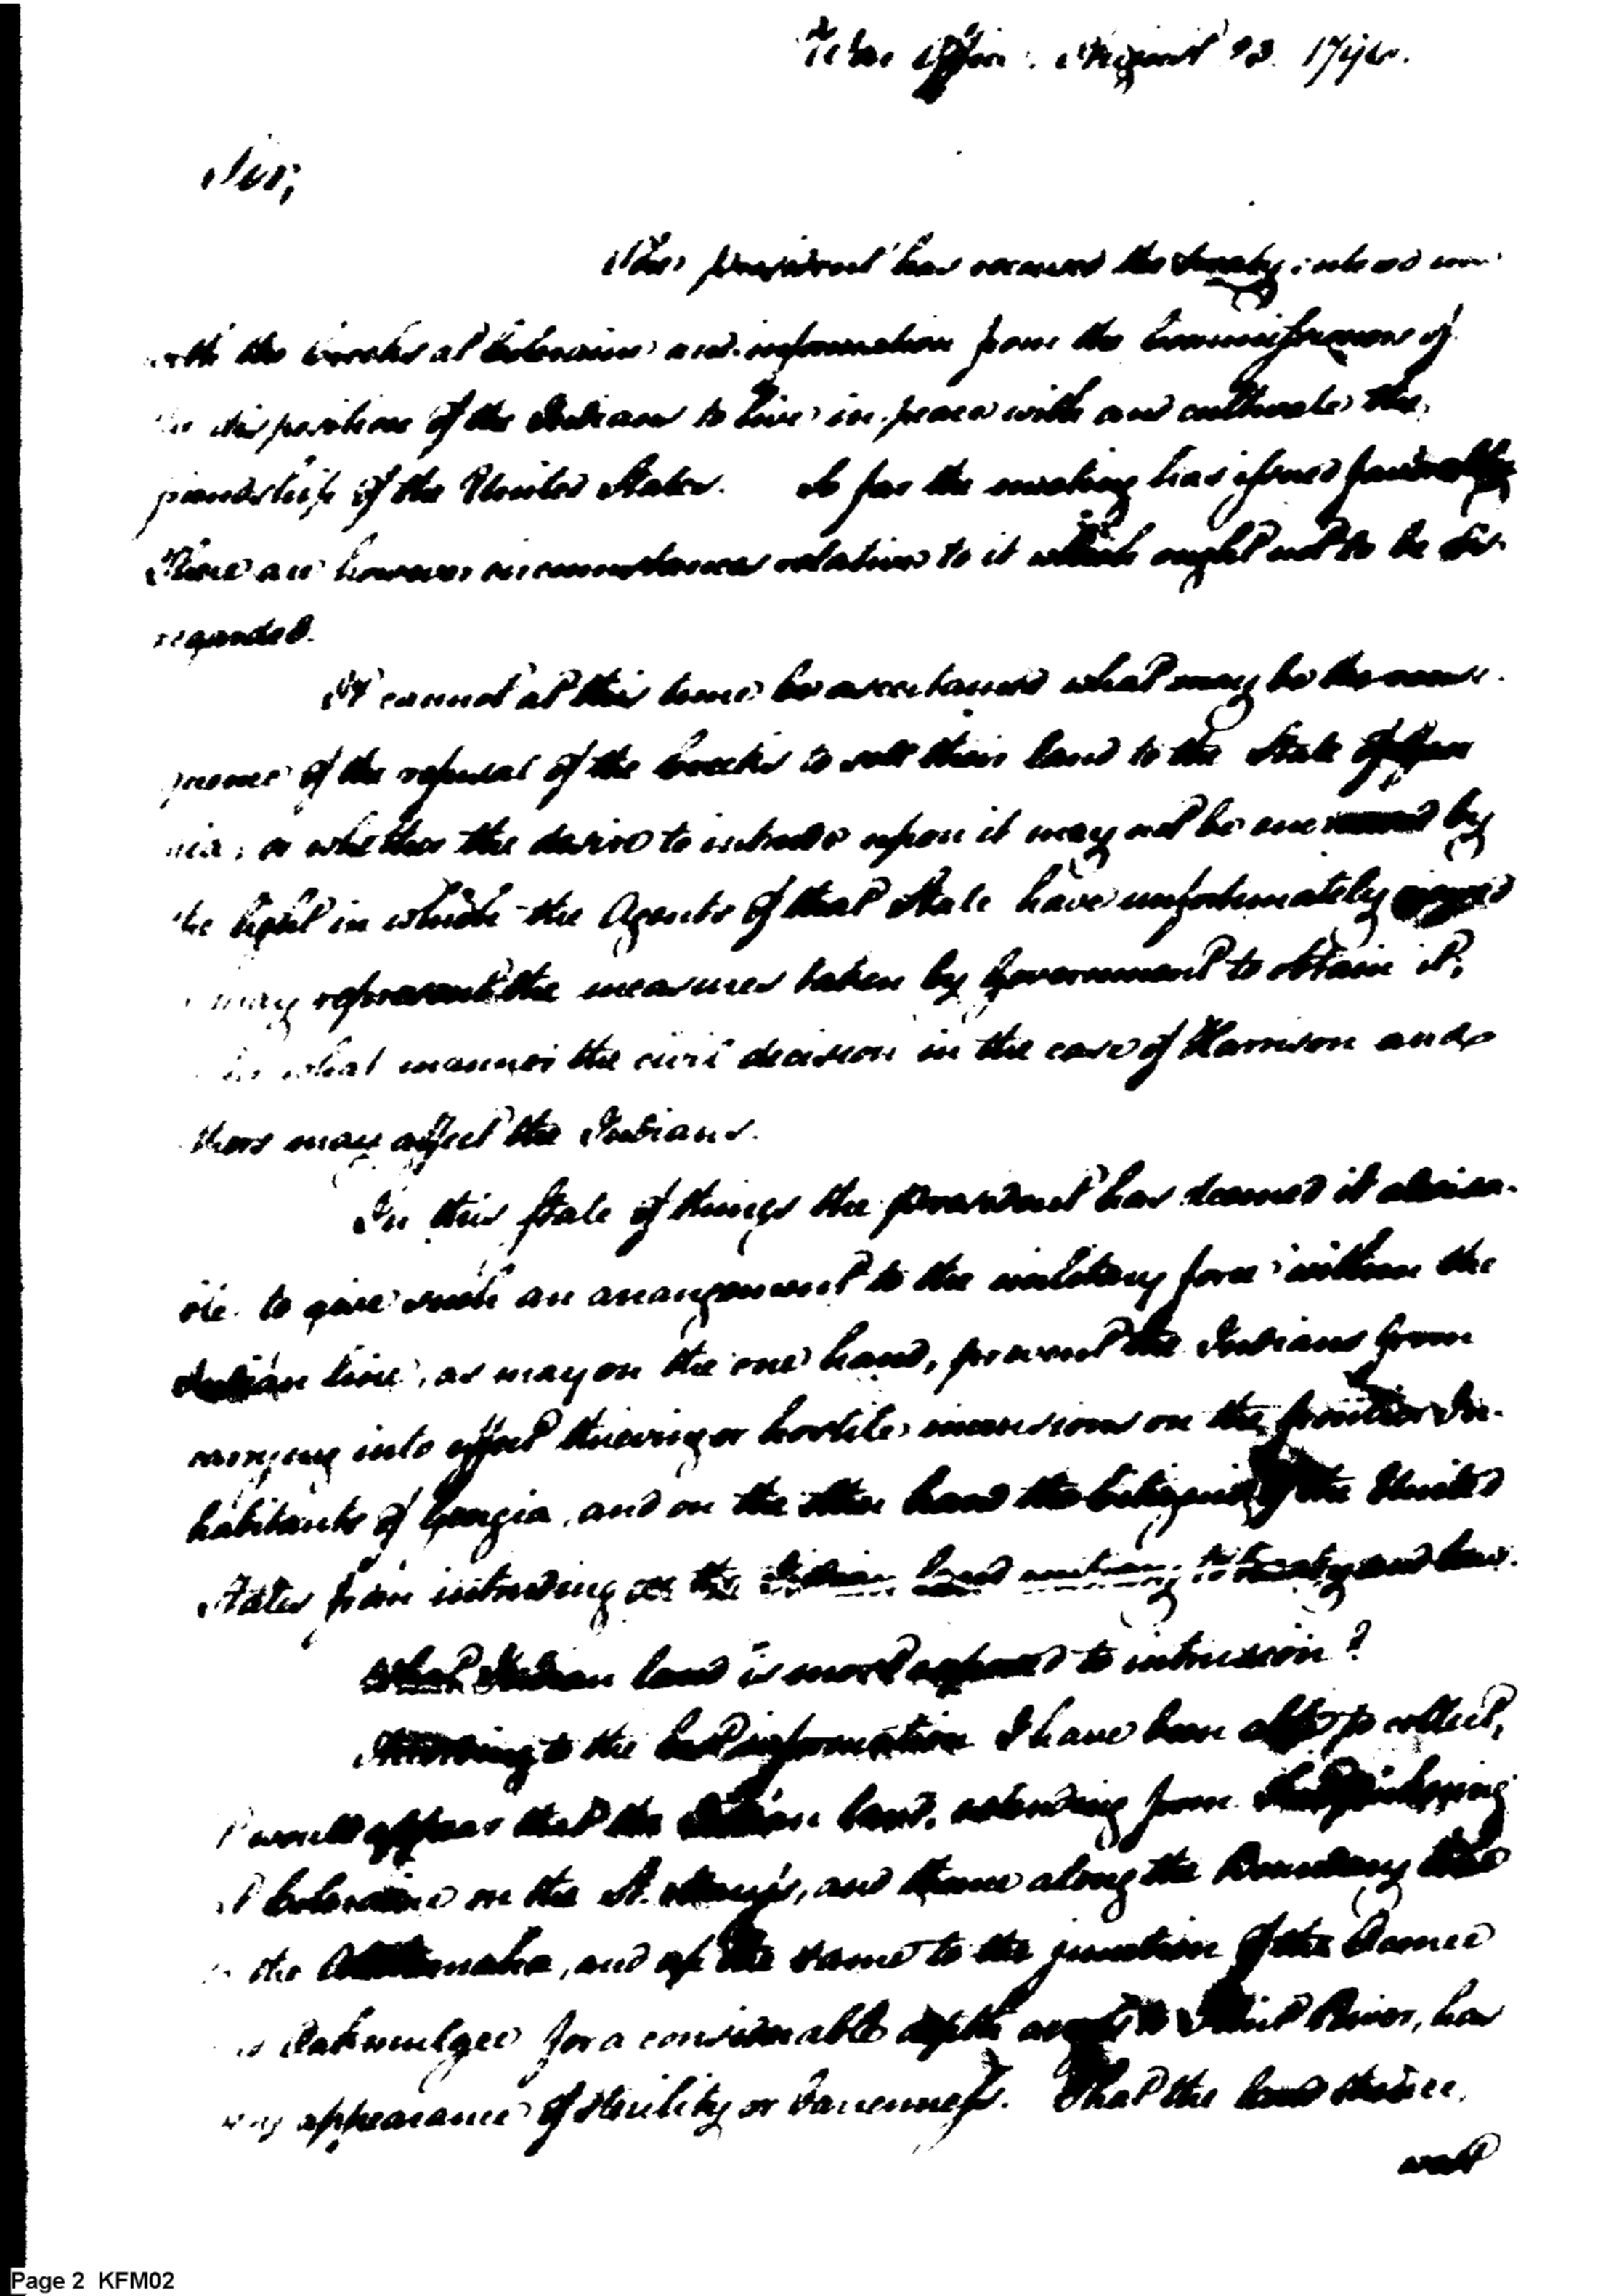 War Office August 23. 1796.
Sir,
The president has received the treaty entered into
with the Creeks at Colerain and information from the Commissioners of
the disposition of the Indians to live in peace with and cultivate the
friendship of the United States. So far the meeting has issued
There are however circumstances relative to it which ought not to be dis-
regarded.
It cannot at this time be ascertained what may be the conse-
quence of the refusal of the Creeks to sell their land to the State of Geor
gia, or whether the desire to intrude upon it may not be by
the light in which the Agents of that State have unfortunately
may represent the measures taken by Government to obtain it;
what manner the civil decision in the case of Harrison and o
thers may affect the Indians.
In this State of things the President has deemed it advisa-
ble to give such an arrangement to the military force within the
Indian line, as may on the one hand, prevent the Indians from
carrying into effect thieving or hostile incursions on the frontier In-
habitants of Georgia, and on the other hand the Citizens of the United
States from intruding on the Indian land contrary to treaty and law.
What Indian land is most exposed to intrusion?
According to the best information I have been able to collect,
it would appear that the Indian land, extending from the
at Colerain on the St. Mary's, and thence along the Boundary line
to the Alatamaha, and up the same to the junction of the Oconee
Oakmulgee for a considerable depth Flint River, has
every appearance of sterility or barenness. That the land thence,
west
Page 2 KFM02